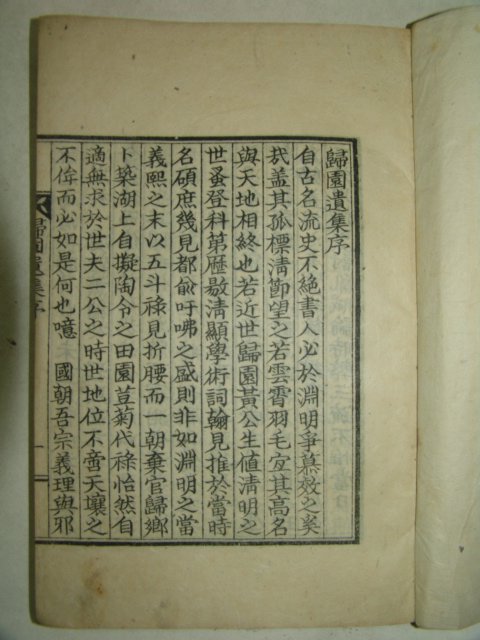 歸園遺集序
自古名流史不絶書人必於淵明爭慕效之奚
哉盖其孤標淸節望之若雲霄羽毛宜其高名
與天地相終也若近世歸園黃公生値淸明之
世蚤登科第歷敭淸顯學術詞翰見推於當時
名碩庶幾見都兪吁咈之盛則非如淵明之當
義熙之末以五斗祿見折腰而一朝棄官歸鄕
卜築湖上自擬陶令之田園荳菊代祿怡然自
適無求於世夫二公之時世地位不啻天壤之
不侔而必如是何也噫 國朝吾宗義理與邪
歸園遺集序 一